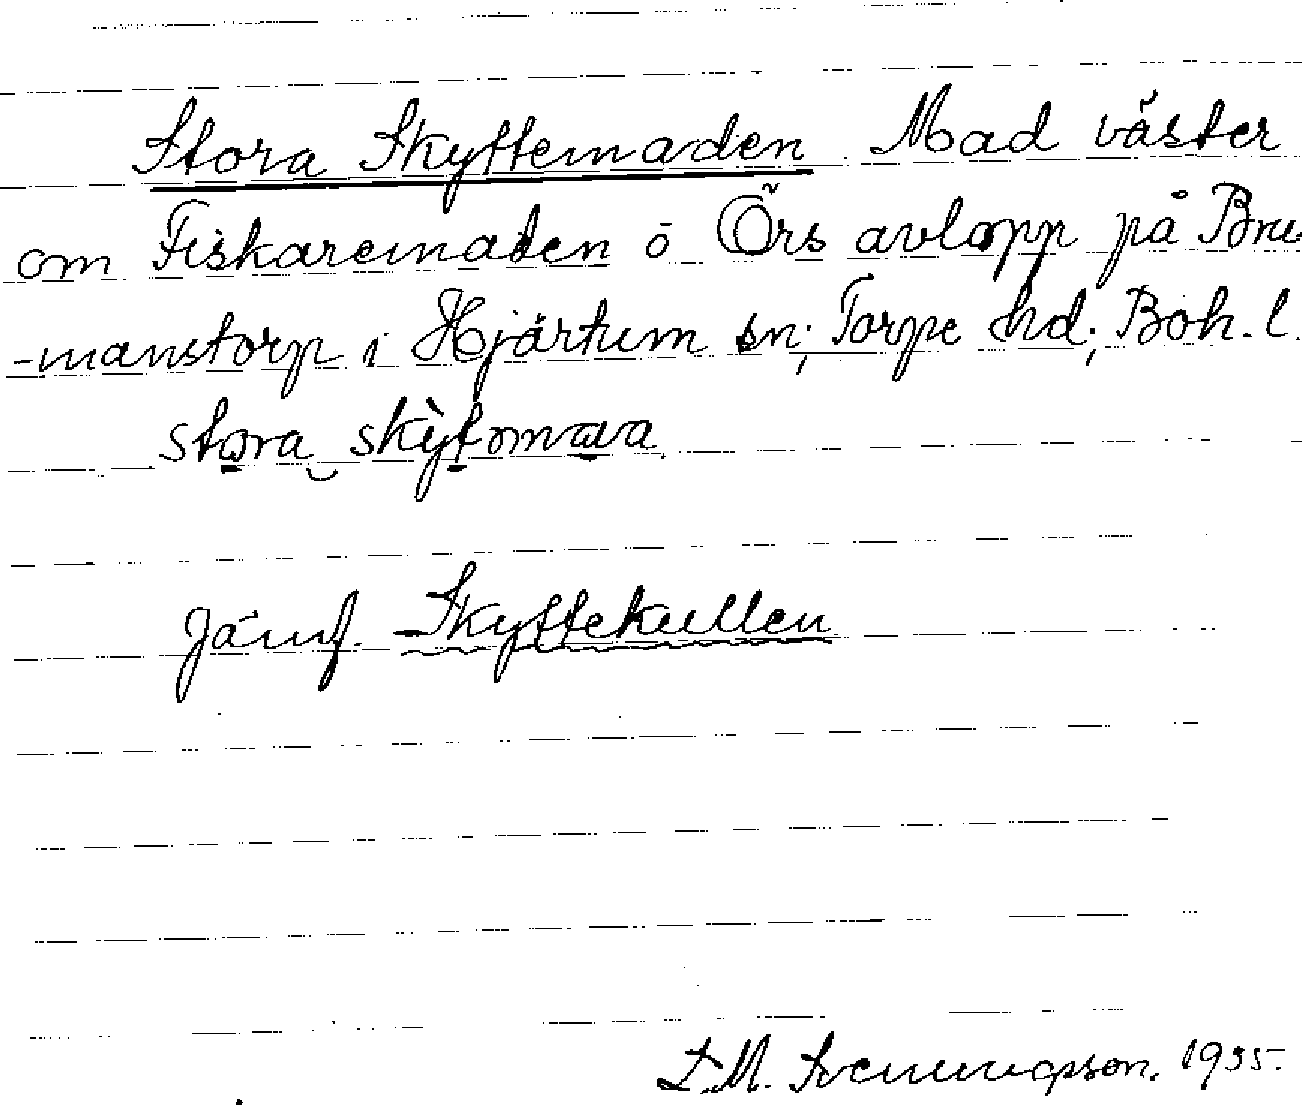 Stora Skyttemaden Mad väster
om Fiskaremaden ö Örs avlopp på Bru
-manstorp i Hjärtum sn; Torpe hd; Boh. l.
stora skỳtomava
Jämf. Skyttekullen
L.M. Svenungsson. 1935.